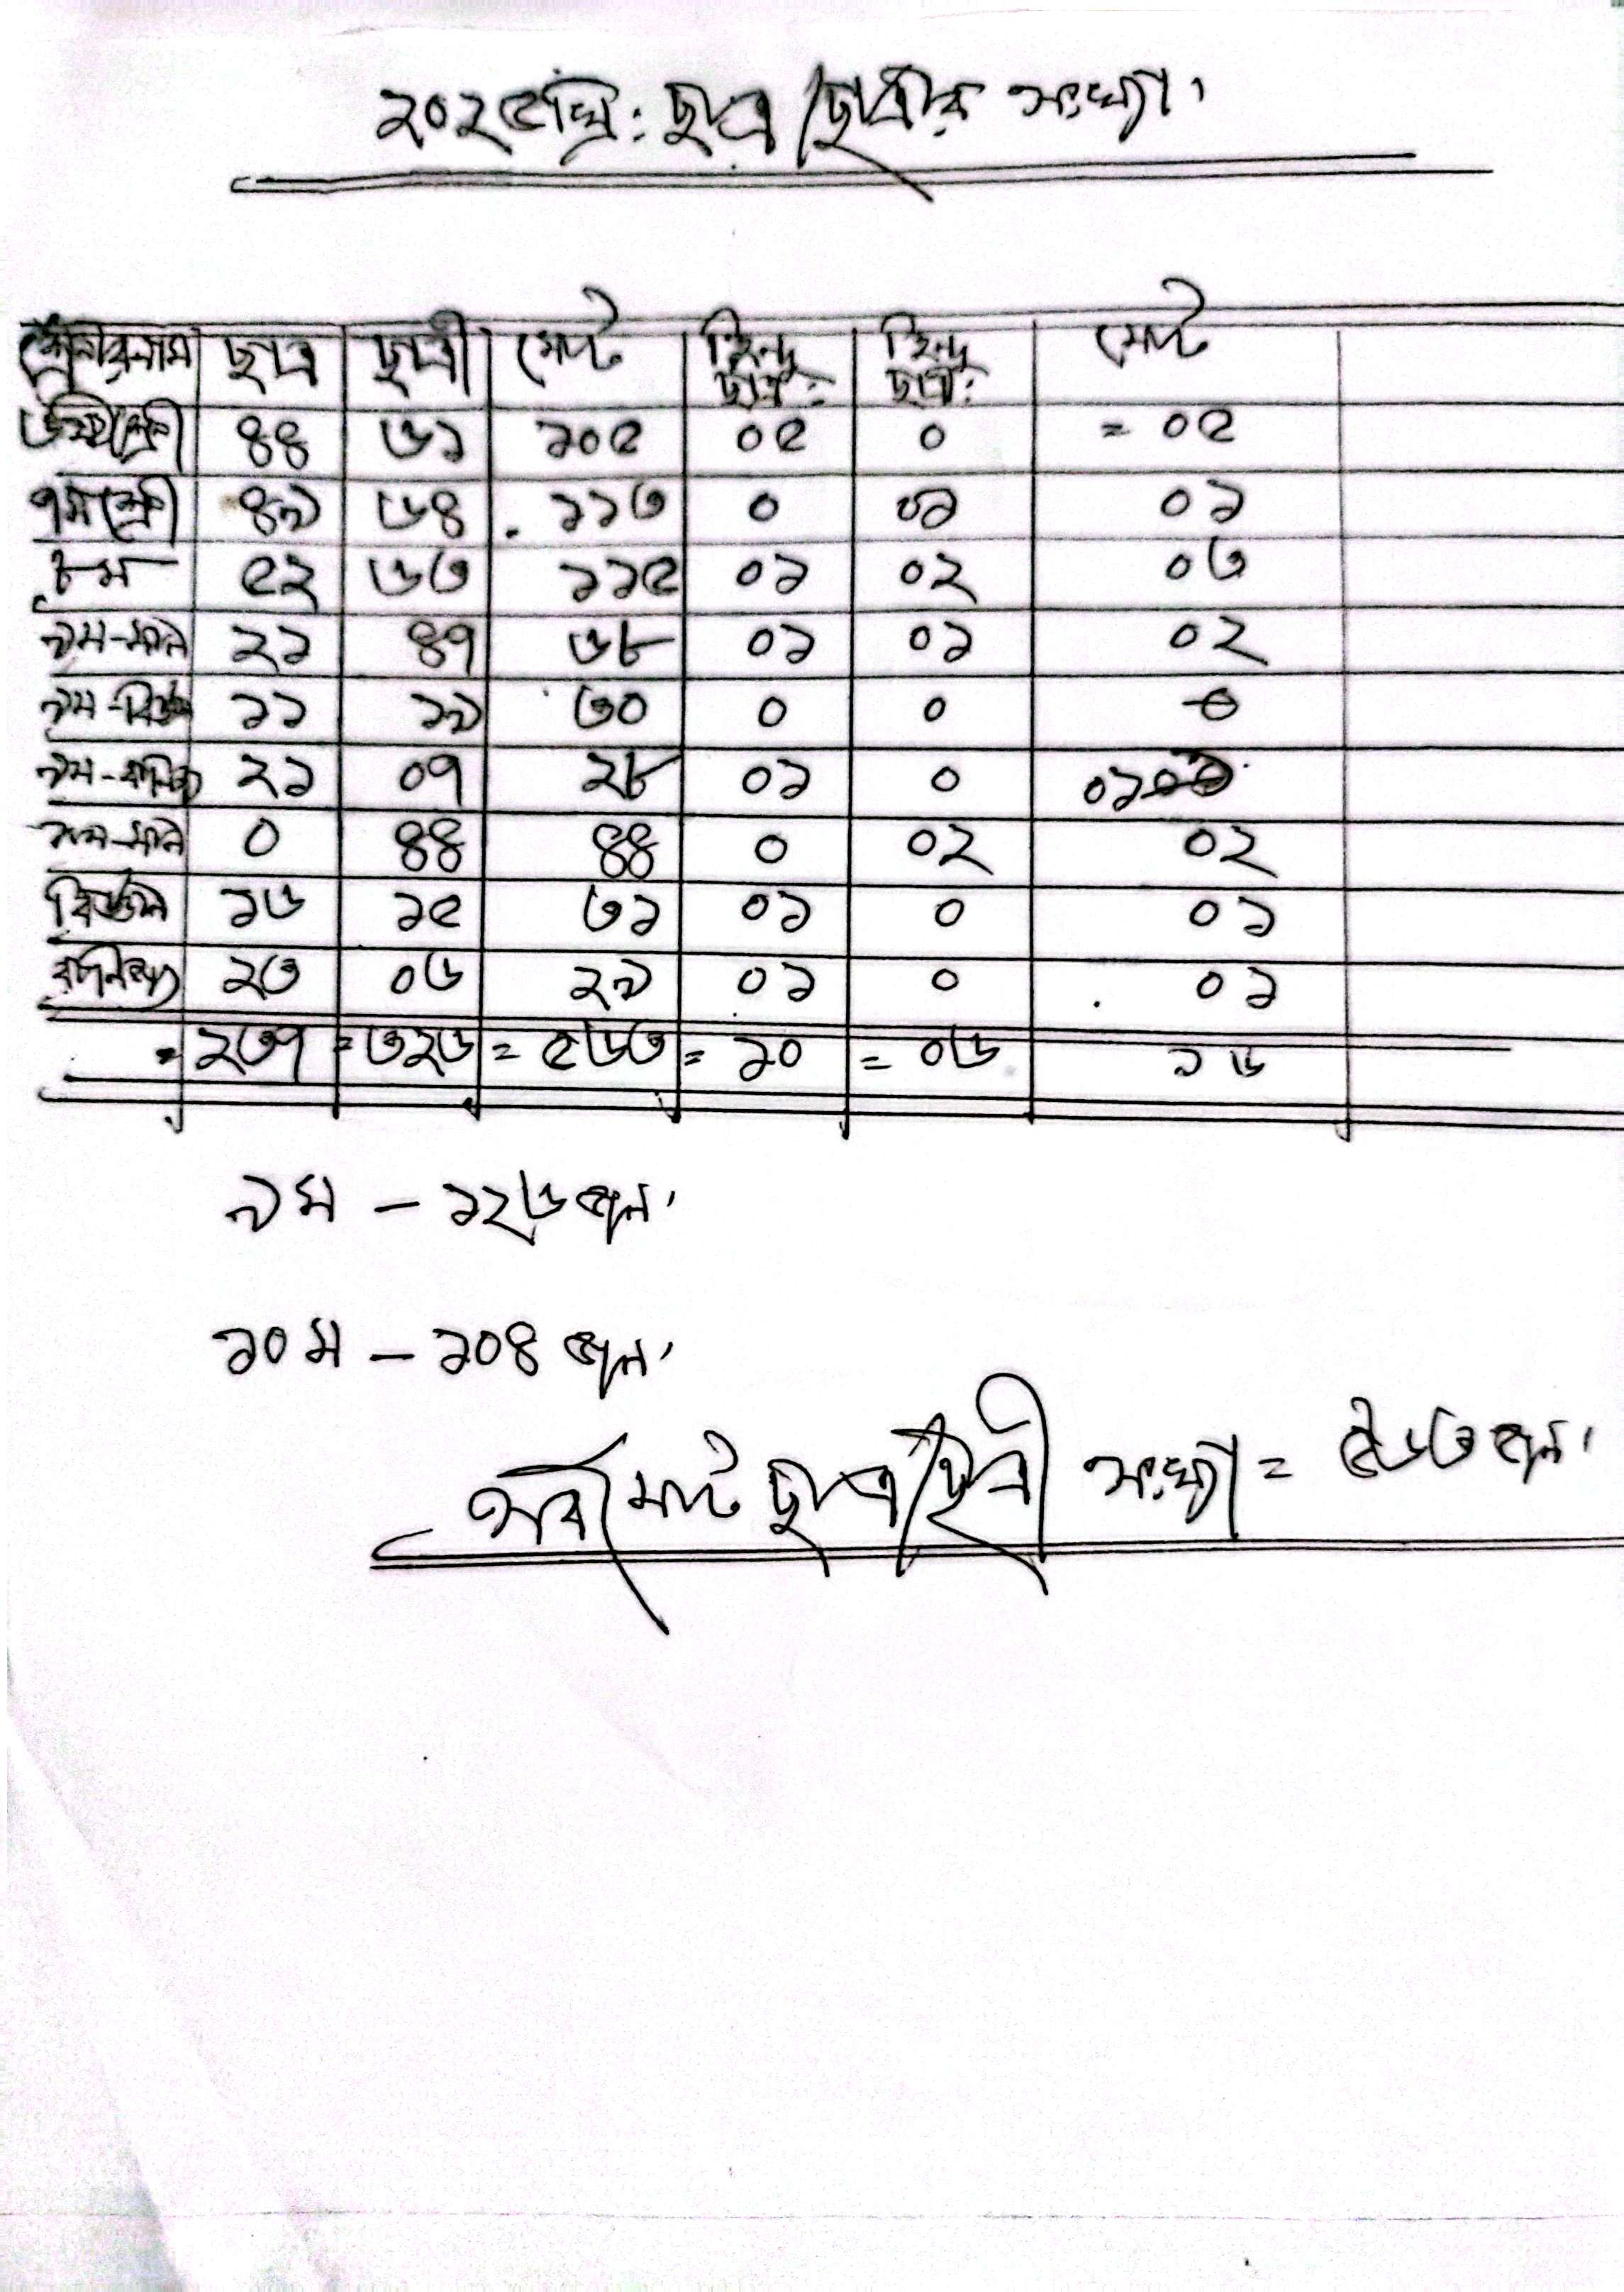 ২০২৫খ্রি: ছাত্র/ছাত্রীর সংখ্যা।
শ্রেনীর নাম ছাত্র ছাত্রী মোট হিন্দু ছাত্র: হিন্দু ছাত্রী: মোট
৬ষ্ঠ শ্রেণী ৪৪ ৬১ ১০৫ ০৫ ০ = ০৫
৭ম শ্রেণী ৪৯ ৬৪ ১১৩ ০ ০১ ০১
৮ম ৫২ ৬৩ ১১৫ ০১ ০২ ০৩
৯ম-মান ২১ ৪৭ ৬৮ ০১ ০১ ০২
৯ম-বিজ্ঞান ১১ ১৯ ৩০ ০ ০ ০
৯ম-বানিজ্য ২১ ০৭ ২৮ ০১ ০ ০১
১০ম-মান ০ ৪৪ ৪৪ ০ ০২ ০২
বিজ্ঞান ১৬ ১৫ ৩১ ০১ ০ ০১
বানিজ্য ২৩ ০৬ ২৯ ০১ ০ ০১
= ২৩৭ = ৩২৬ = ৫৬৩ = ১০ = ০৬ ১৬
৯ম – ১২৬ জন।
১০ম – ১০৪ জন।
সর্ব মোট ছাত্র/ছাত্রী সংখ্যা = ৫৬৩ জন।